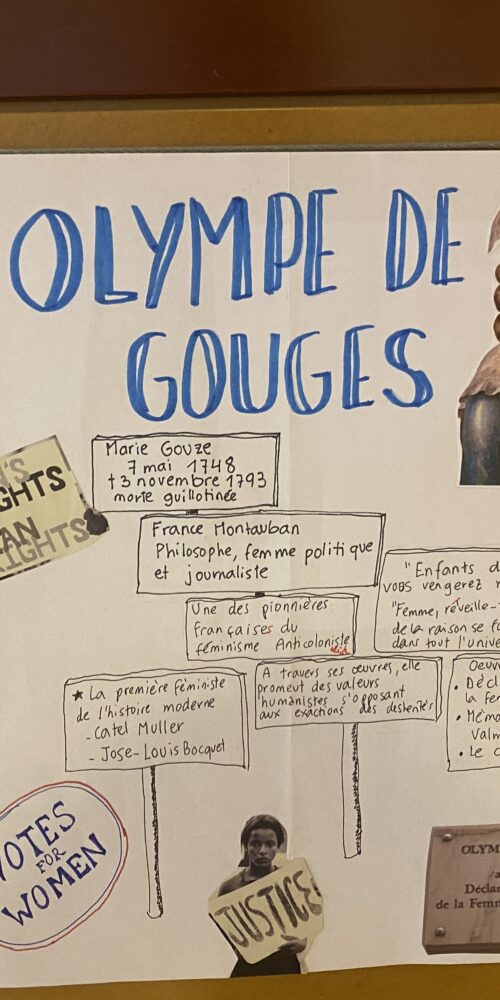 OLYMPE DE
GOUGES
GHTS
RIGHTS
Marie Gouze
7 mai 1748
†3 novembre 1793
morte guillotinée
France Montauban
Philosophe, femme politique
et journaliste
Une des pionnières
françaises du
féminisme Anticoloniste
"Enfants d
vous vengerez
"Femme, réveille-
de la raison se f
dans tout l'unive
★ La première féministe
de l'histoire moderne
- Catel Muller
- Jose-Louis Bocquet
A travers ses œuvres, elle
promeut des valeurs
humanistes s'opposant
aux exactions des
Oeuv
• Décl
la fe
• Mémo
Valm
• Le C
VOTES
FOR
WOMEN
JUSTICE
OLYM
Déclar
de la Femm